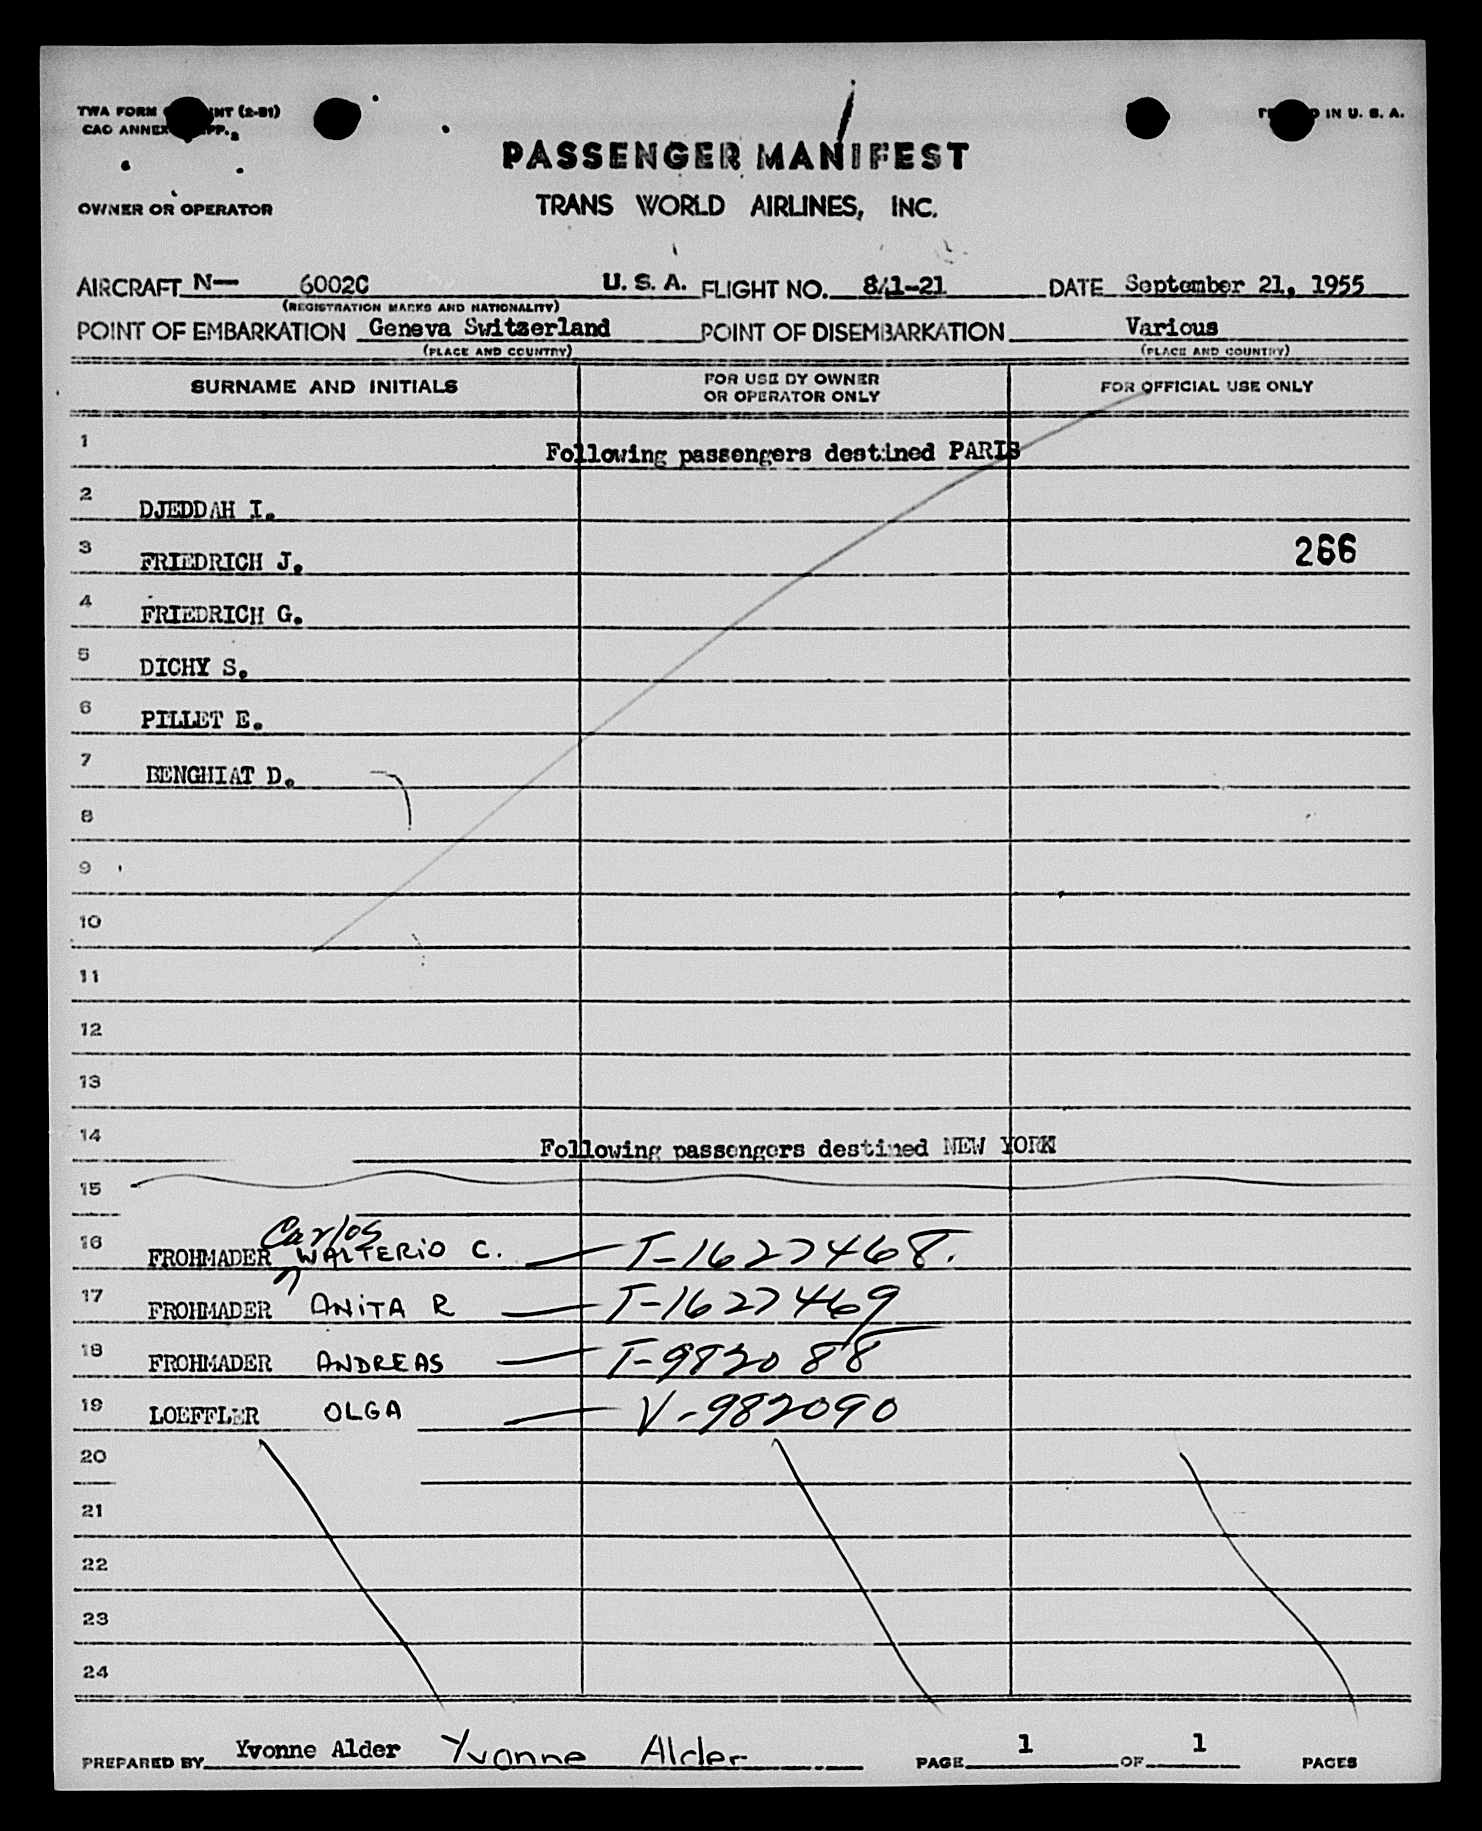 TWA FORM INT (2-51) IN U. S. A.
CAO ANNEX APP.
PASSENGER MANIFEST
OWNER OR OPERATOR TRANS WORLD AIRLINES, INC.
AIRCRAFT N— 6002C U. S. A. FLIGHT NO. 841-21 DATE September 21, 1955
(REGISTRATION MARKS AND NATIONALITY)
POINT OF EMBARKATION Geneva Switzerland POINT OF DISEMBARKATION Various
(PLACE AND COUNTRY) (PLACE AND COUNTRY)
SURNAME AND INITIALS FOR USE BY OWNER OR OPERATOR ONLY FOR OFFICIAL USE ONLY
1 Following passengers destined PARIS
2 DJEDDAH I.
3 FRIEDRICH J. 266
4 FRIEDRICH G.
5 DICHY S.
6 PILLET E.
7 BENGHIAT D.
8
9
10
11
12
13
14 Following passengers destined NEW YORK
15
Carlos
16 FROHMADER WALTERIO C. — T-1627468.
17 FROHMADER ANITA R — T-1627469
18 FROHMADER ANDREAS — T-982088
19 LOEFFLER OLGA — V-982090
20
21
22
23
24
PREPARED BY Yvonne Alder Yvonne Alder PAGE 1 OF 1 PAGES